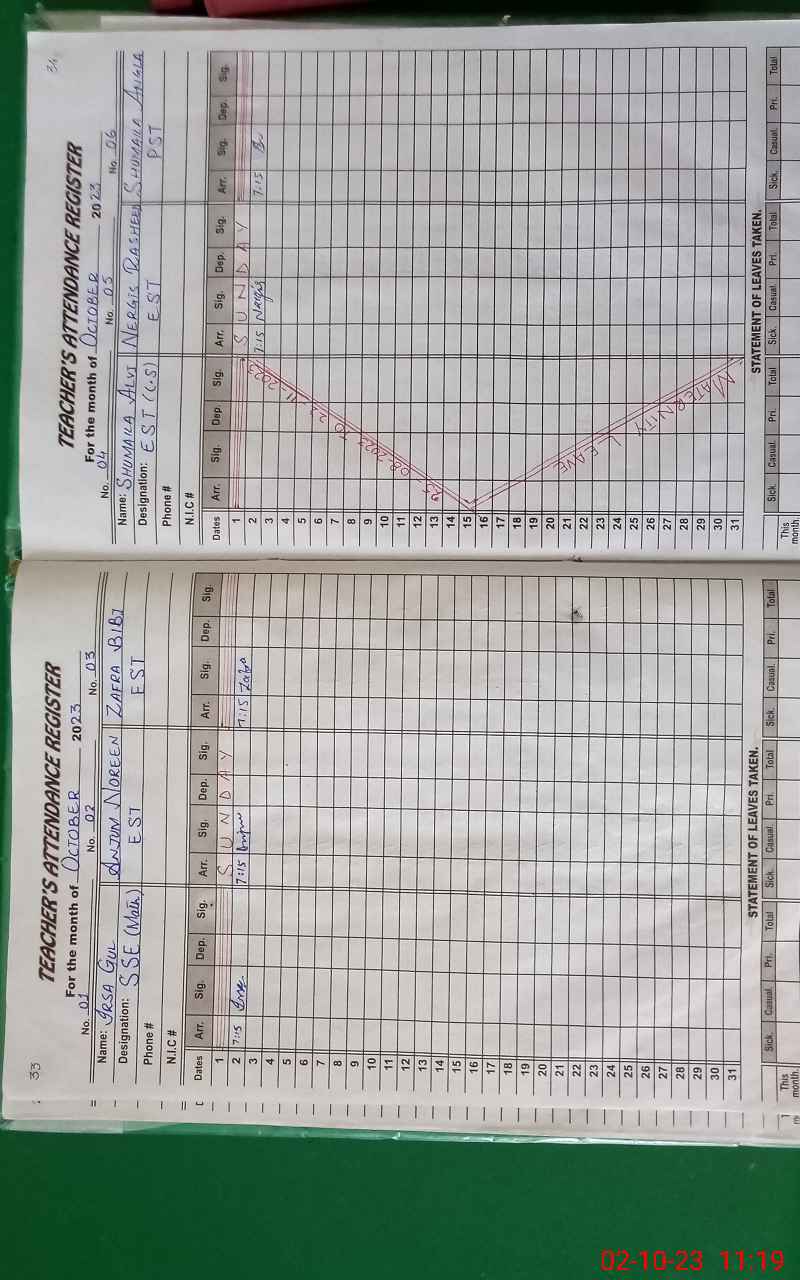 33
TEACHER'S ATTENDANCE REGISTER
For the month of OCTOBER 2023
No. 01 No. 02 No. 03
Name: IRSA GUL ANJUM NOREEN ZAFRA BIBI
Designation: SSE (Math) EST EST
Phone #
N.I.C #
Dates Arr. Sig. Dep. Sig. Arr. Sig. Dep. Sig. Arr. Sig. Dep. Sig.
1 SUNDAY
2 7:15 Irsa 7:15 7:15 Zafra
3
4
5
6
7
8
9
10
11
12
13
14
15
16
17
18
19
20
21
22
23
24
25
26
27
28
29
30
31
STATEMENT OF LEAVES TAKEN.
Sick. Casual. Pri. Total Sick. Casual. Pri. Total Sick. Casual. Pri. Total
This month.
34
TEACHER'S ATTENDANCE REGISTER
For the month of OCTOBER 2023
No. 04 No. 05 No. 06
Name: SHUMAILA ALVI NERGIS RASHEED SHUMAILA ANGLA
Designation: EST (C.S) EST PST
Phone #
N.I.C #
Dates Arr. Sig. Dep. Sig. Arr. Sig. Dep. Sig. Arr. Sig. Dep. Sig.
1 SUNDAY
2 7:15 Nergis 7:15
3
4
5
6
7
8
9
10
11
12
13
14
15
16
17
18
19
20
21
22
23
24
25
26
27
28
29
30
31
25-08-2023 TO 22-11-2023
MATERNITY LEAVE
STATEMENT OF LEAVES TAKEN.
Sick. Casual. Pri. Total Sick. Casual. Pri. Total Sick. Casual. Pri. Total
This month.
02-10-23 11:19